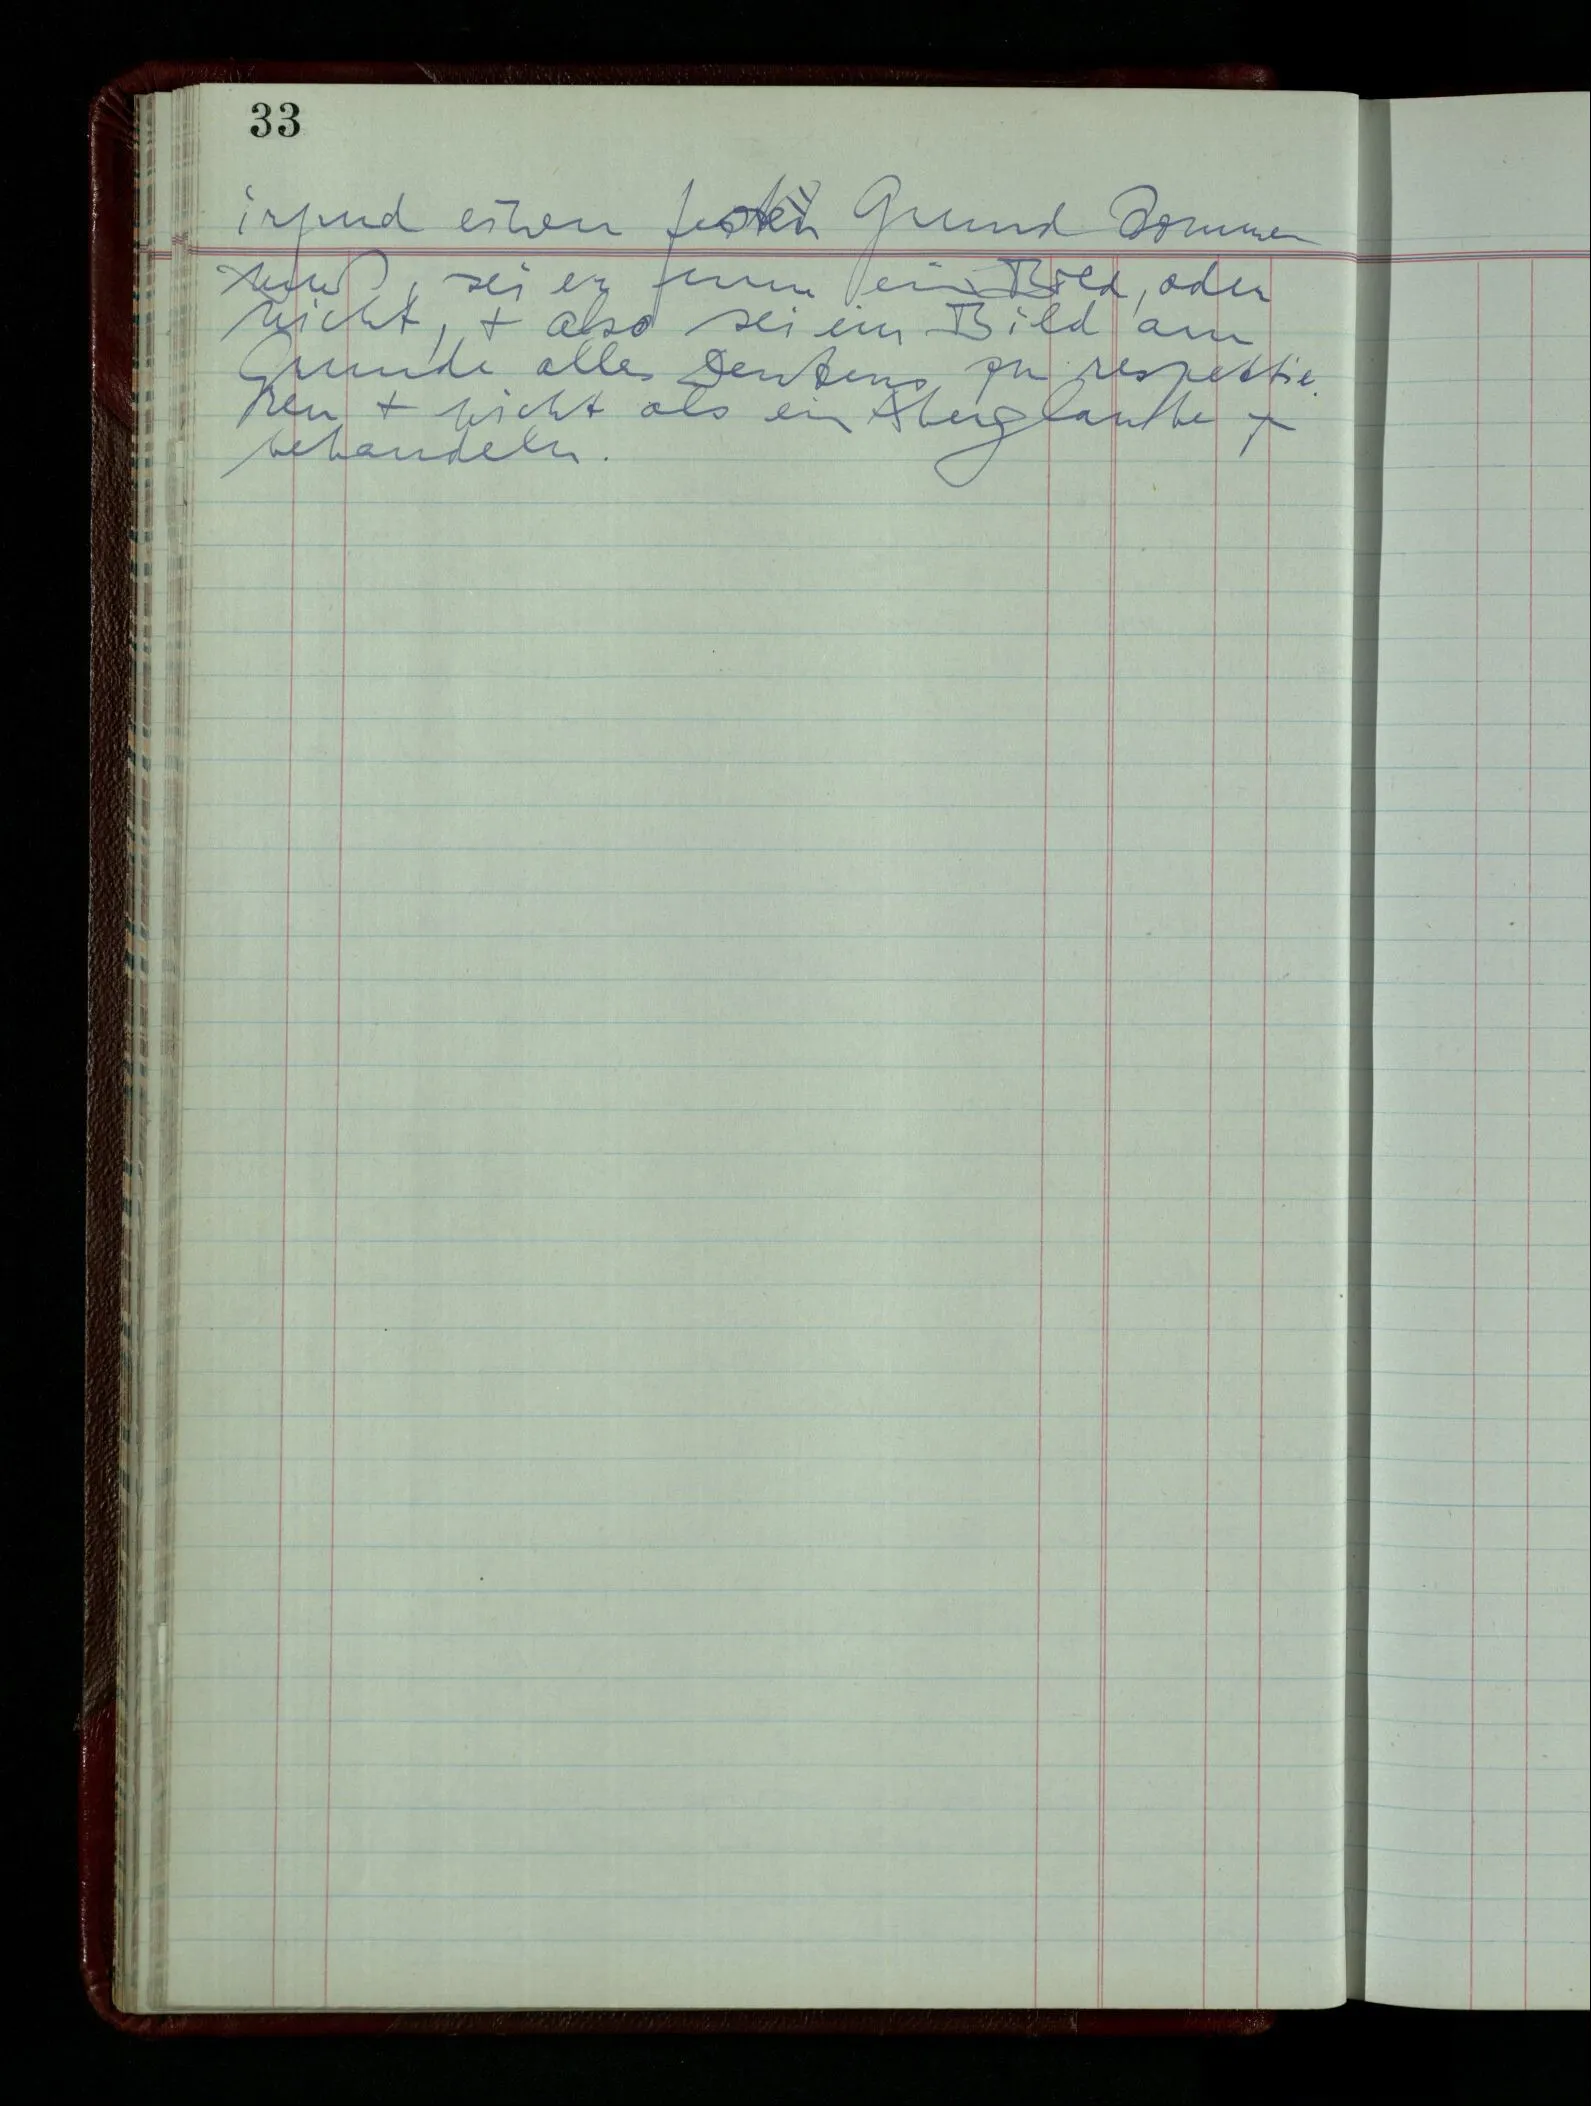 33
irgend einen festen Grund kommen
muß, sei er nun ein Bild, oder
nicht, + also sei ein Bild am
Grunde alles Denkens zu respektie
ren + nicht als ein Aberglaube zu
behandeln.